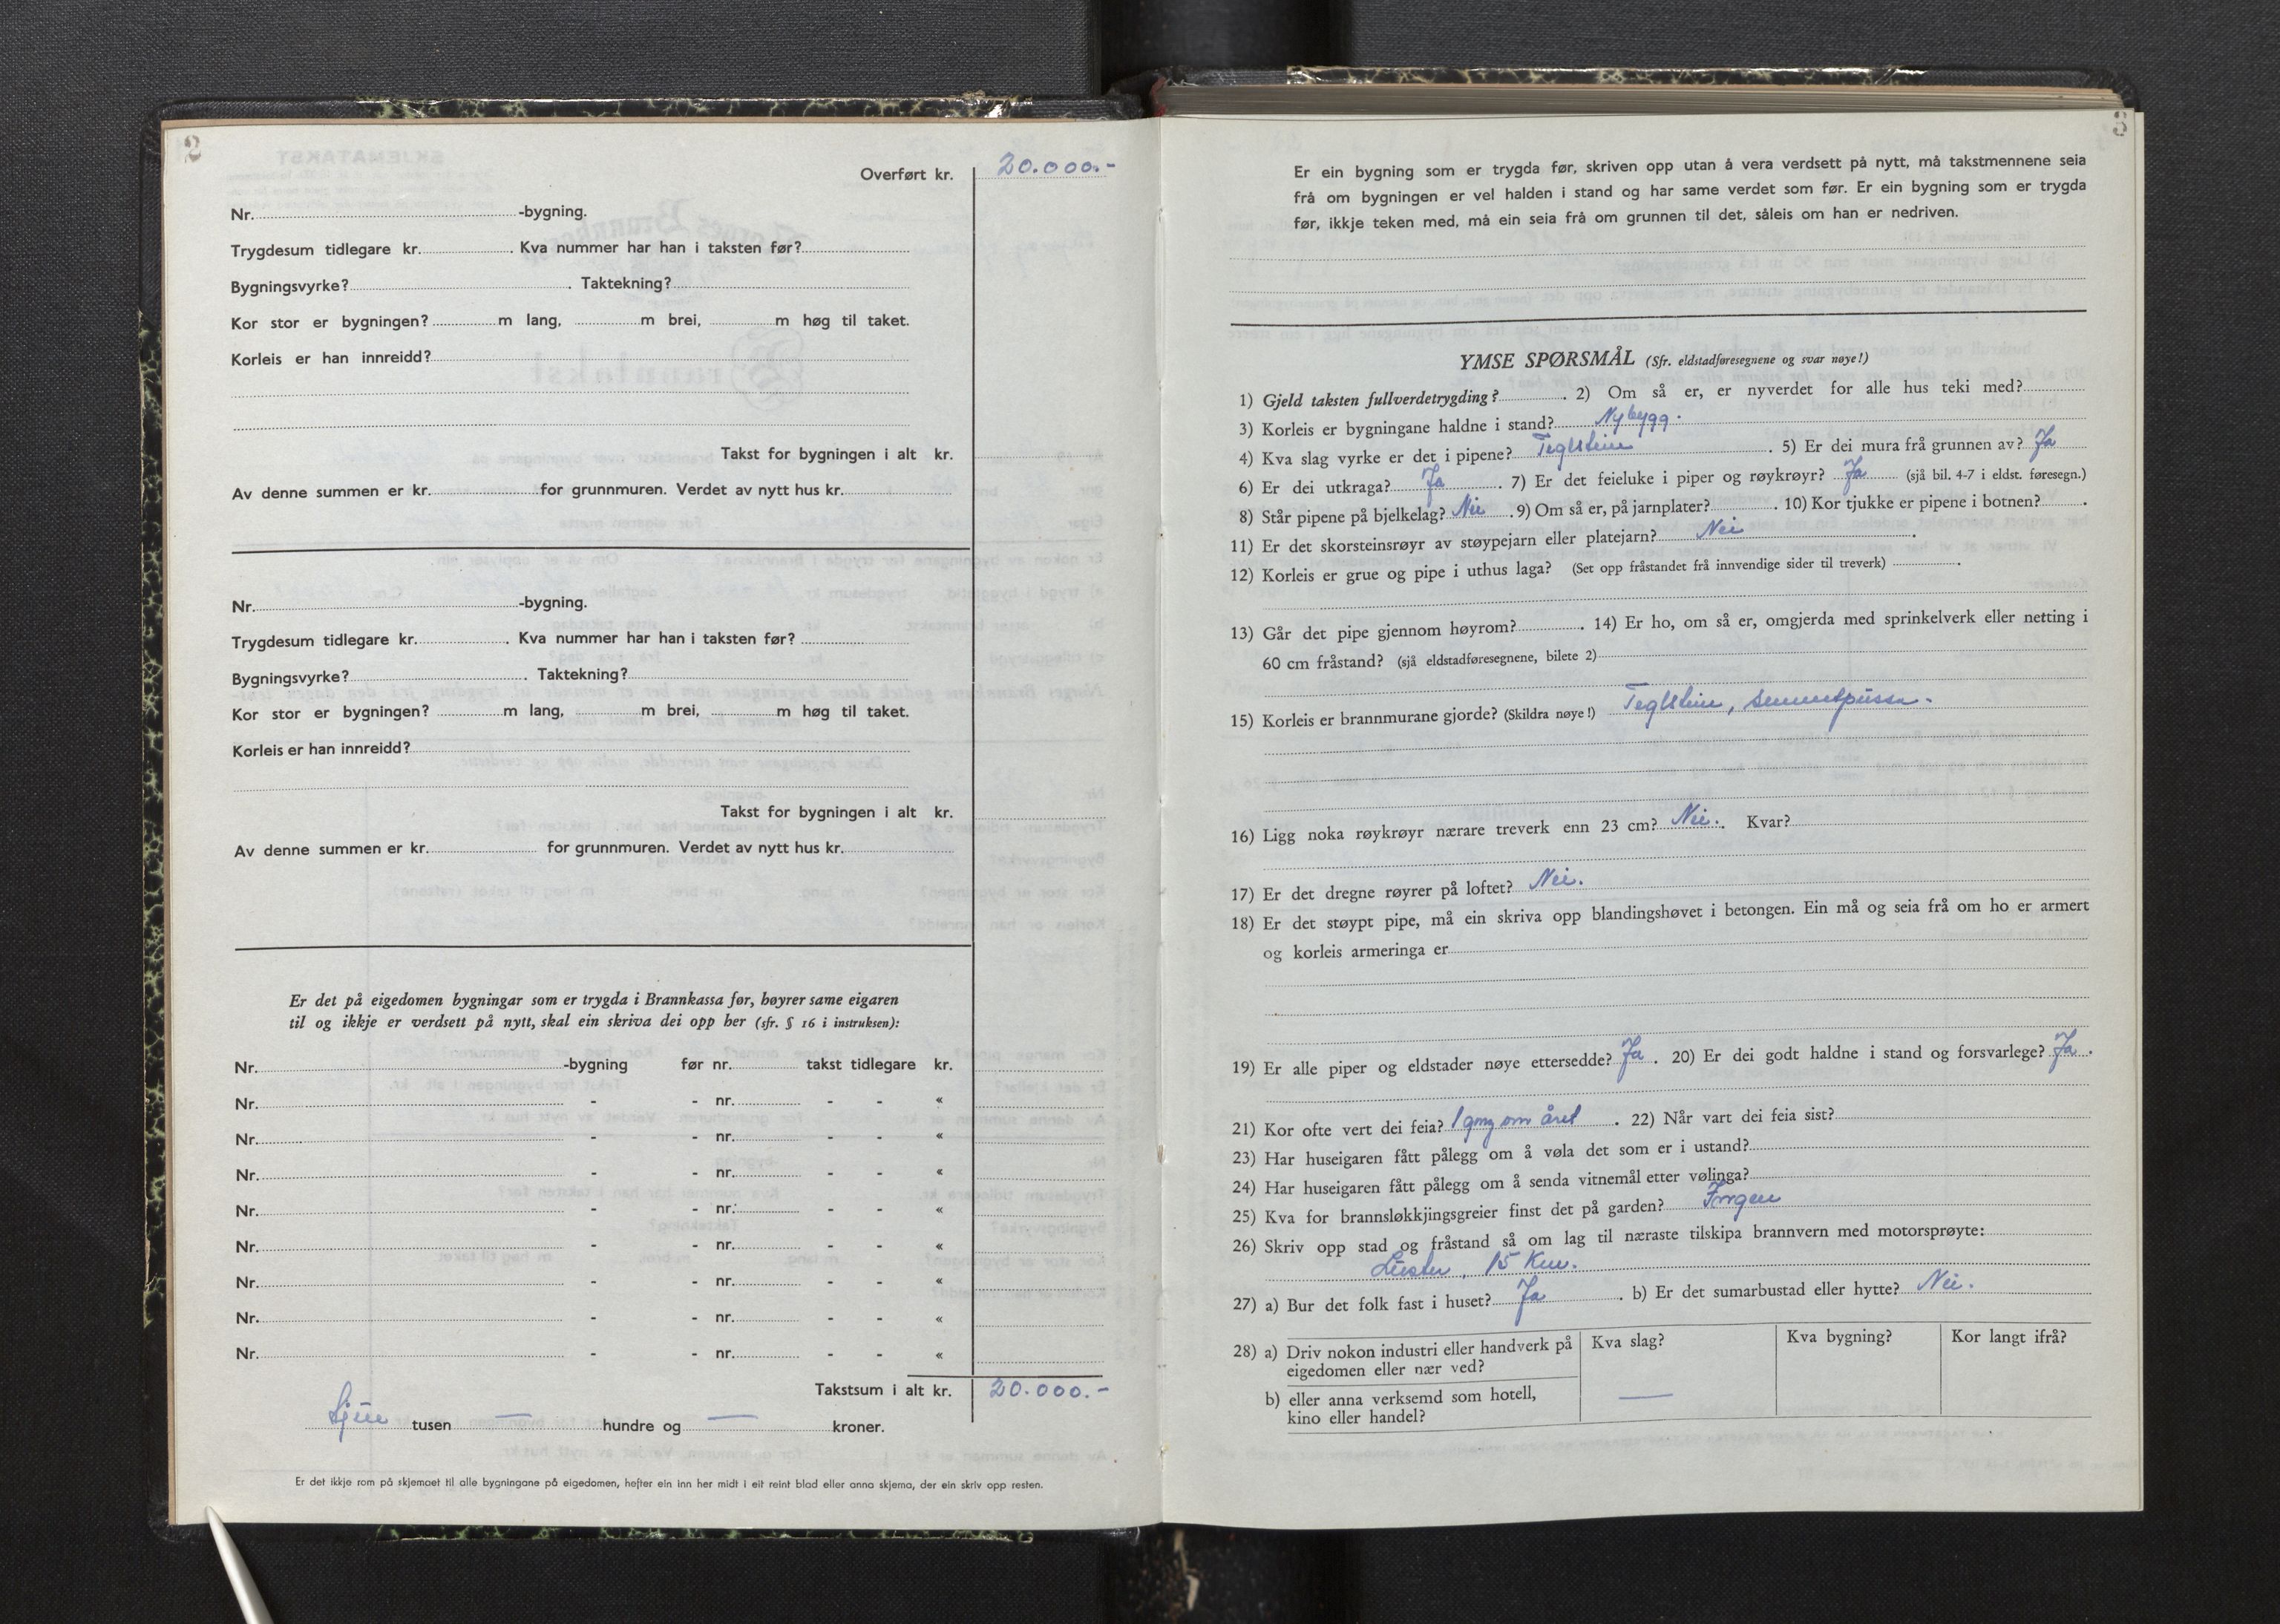 2
Overført kr. 20.000.-
Nr. -bygning.
Trygdesum tidlegare kr. . Kva nummer har han i taksten før?
Bygningsvyrke? . Taktekning?
Kor stor er bygningen? m lang, m brei, m høg til taket.
Korleis er han innreidd?
Takst for bygningen i alt kr.
Av denne summen er kr. for grunnmuren. Verdet av nytt hus kr.
Nr. -bygning.
Trygdesum tidlegare kr. . Kva nummer har han i taksten før?
Bygningsvyrke? . Taktekning?
Kor stor er bygningen? m lang, m brei, m høg til taket.
Korleis er han innreidd?
Takst for bygningen i alt kr.
Av denne summen er kr. for grunnmuren. Verdet av nytt hus kr.
Er det på eigedomen bygningar som er trygda i Brannkassa før, høyrer same eigaren
til og ikkje er verdsett på nytt, skal ein skriva dei opp her (sfr. § 16 i instruksen):
Nr. -bygning før nr. takst tidlegare kr.
Nr. - - nr. - - «
Nr. - - nr. - - «
Nr. - - nr. - - «
Nr. - - nr. - - «
Nr. - - nr. - - «
Nr. - - nr. - - «
Nr. - - nr. - - «
Nr. - - nr. - - «
Takstsum i alt kr. 20.000.-
tusen — hundre og — kroner.
Er det ikkje rom på skjemaet til alle bygningane på eigedomen, hefter ein inn her midt i eit reint blad eller anna skjema, der ein skriv opp resten.
3
Er ein bygning som er trygda før, skriven opp utan å vera verdsett på nytt, må takstmennene seia
frå om bygningen er vel halden i stand og har same verdet som før. Er ein bygning som er trygda
før, ikkje teken med, må ein seia frå om grunnen til det, såleis om han er nedriven.
YMSE SPØRSMÅL (Sfr. eldstadføresegnene og svar nøye!)
1) Gjeld taksten fullverdetrygding? . 2) Om så er, er nyverdet for alle hus teki med?
3) Korleis er bygningane haldne i stand? Nybygg.
4) Kva slag vyrke er det i pipene? Teglstein . 5) Er dei mura frå grunnen av? Ja
6) Er dei utkraga? Ja . 7) Er det feieluke i piper og røykrøyr? Ja (sjå bil. 4-7 i eldst. føresegn.)
8) Står pipene på bjelkelag? Nei . 9) Om så er, på jarnplater? . 10) Kor tjukke er pipene i botnen? .
11) Er det skorsteinsrøyr av støypejarn eller platejarn? Nei .
12) Korleis er grue og pipe i uthus laga? (Set opp fråstandet frå innvendige sider til treverk) .
13) Går det pipe gjennom høyrom? . 14) Er ho, om så er, omgjerda med sprinkelverk eller netting i
60 cm fråstand? (sjå eldstadføresegnene, bilete 2)
15) Korleis er brannmurane gjorde? (Skildra nøye!) Teglstein, sementpussa.
16) Ligg noka røykrøyr nærare treverk enn 23 cm? Nei. . Kvar?
17) Er det dregne røyrer på loftet? Nei.
18) Er det støypt pipe, må ein skriva opp blandingshøvet i betongen. Ein må og seia frå om ho er armert
og korleis armeringa er
19) Er alle piper og eldstader nøye ettersedde? Ja . 20) Er dei godt haldne i stand og forsvarlege? Ja .
21) Kor ofte vert dei feia? 1 gong om året . 22) Når vart dei feia sist?
23) Har huseigaren fått pålegg om å vøla det som er i ustand?
24) Har huseigaren fått pålegg om å senda vitnemål etter vølinga?
25) Kva for brannsløkkjingsgreier finst det på garden? Ingen
26) Skriv opp stad og fråstand så om lag til næraste tilskipa brannvern med motorsprøyte:
Luster, 15 Km.
27) a) Bur det folk fast i huset? Ja . b) Er det sumarbustad eller hytte? Nei.
28) a) Driv nokon industri eller handverk på
eigedomen eller nær ved?
Kva slag? Kva bygning? Kor langt ifrå?
b) eller anna verksemd som hotell,
kino eller handel?
—